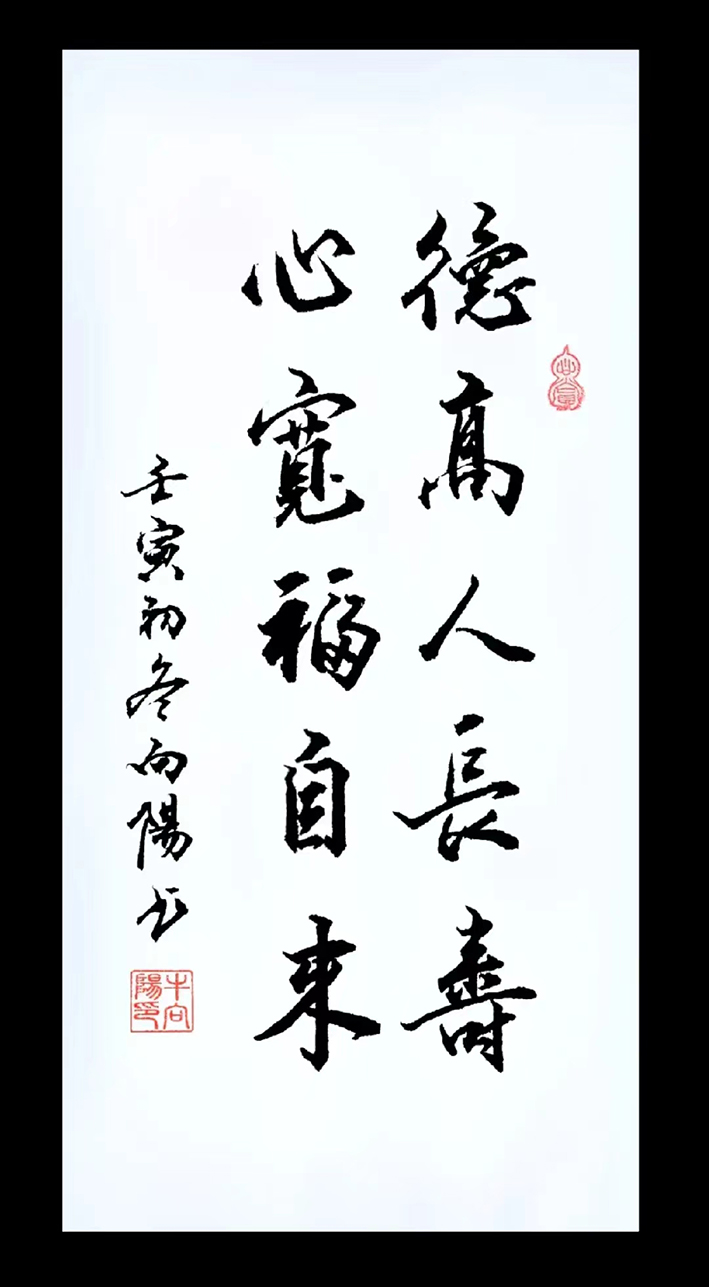 德高人長壽
心寬福自来
壬寅初冬向陽书
牛向陽印